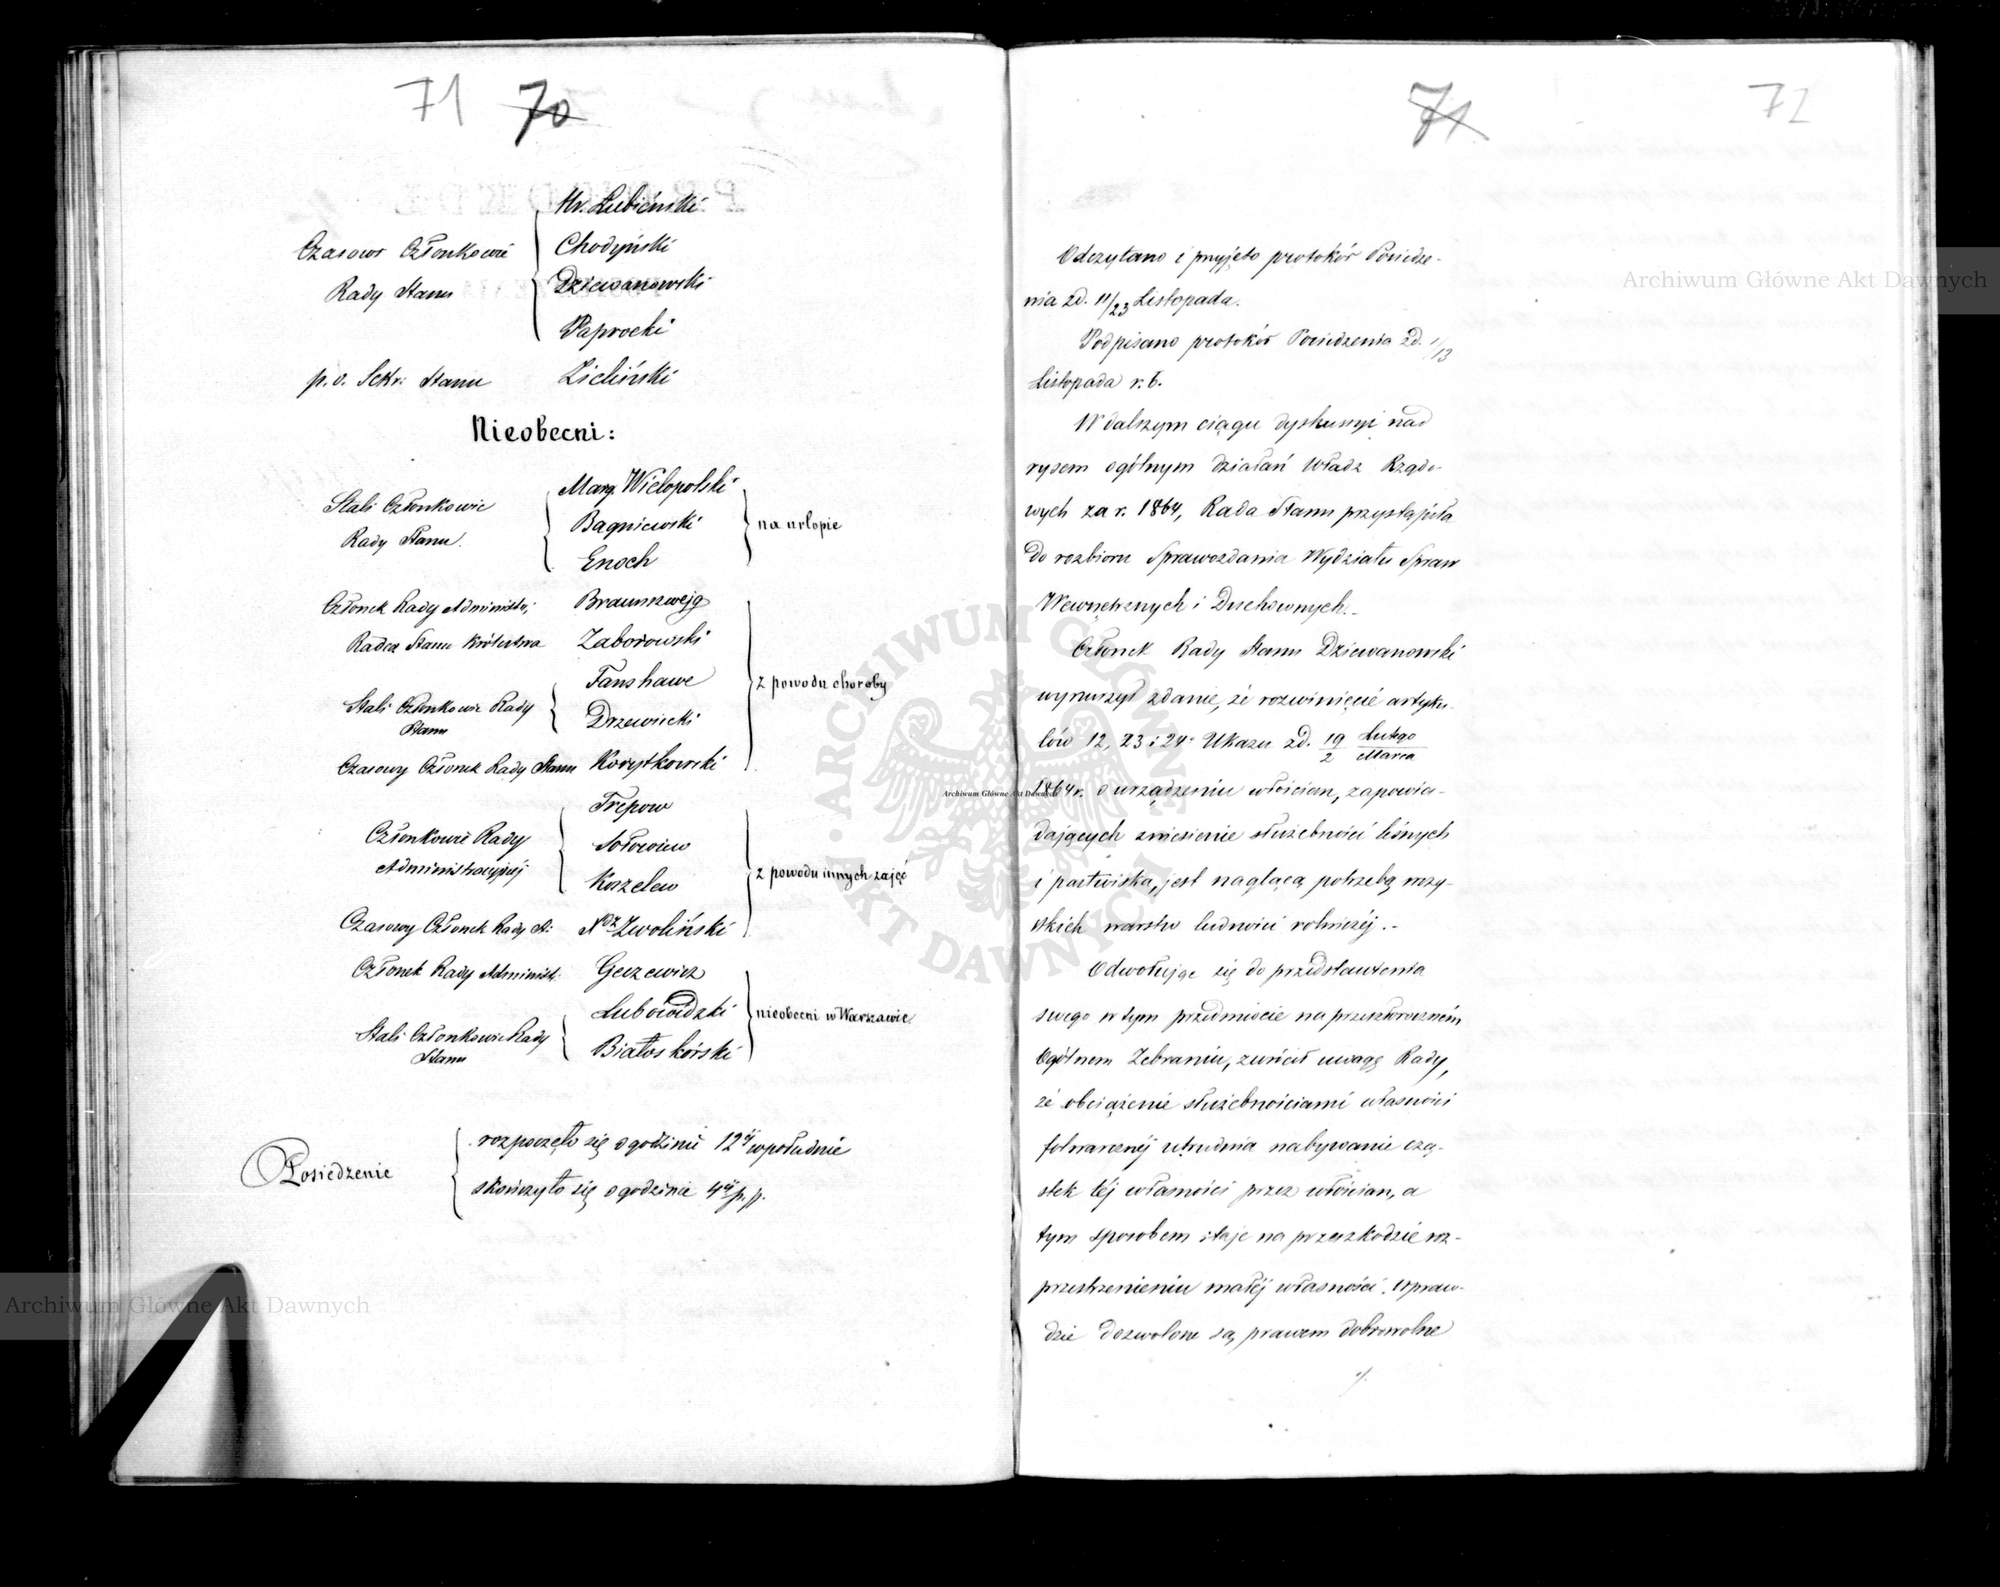 71 70
Hr. Łubieński
Czasowi Członkowie
Chodyński
Rady Stanu
Dziewanowski
Paprocki
p. o. Sekr: Stanu Zieliński
Nieobecni:
Stali Członkowie
Rady Stanu.
Marg. Wielopolski
Bagniewski
Enoch
na urlopie
Członek Rady Administr: Braunszwejg
Radca Stanu Królestwa Zaborowski
Stali Członkowie Rady
Stanu
Fanshawe
Drzewiecki
Czasowy Członek Rady Stanu Korytkowski
z powodu choroby
Członkowie Rady
Administracyjnéj
Trepow
Sołowiew
Koszelew
Czasowy Członek Rady St: Zwoliński
z powodu innych zajęć
Członek Rady Administ: Geczewicz
Stali Członkowie Rady
Stanu
Lubowidzki
Białoskórski
nieobecni w Warszawie
Posiedzenie
rozpoczęło się o godzinie 12éj w południe
skończyło się o godzinie 4éj p. p.
71 72
Odczytano i przyjęto protokół Posiedze-
nia z d. 11/23 Listopada.
Podpisano protokół Posiedzenia z d. 1/13
Listopada r. b.
W dalszym ciągu dyskussyi nad
rysem ogólnym działań Władz Rządo-
wych za r. 1864, Rada Stanu przystąpiła
do rozbioru Sprawozdania Wydziału Spraw
Wewnętrznych i Duchownych.
Członek Rady Stanu Dziewanowski
wynurzył zdanie, że rozwinięcie artyku-
łów 12, 23 i 24 Ukazu z d. 19 Lutego
2 Marca
1864 r. o urządzeniu włościan, zapowia-
dających zniesienie służebności leśnych
i pastwiska, jest naglącą potrzebą wszy-
stkich warstw ludności rolniczéj.-
Odwołując się do przedstawienia
swego w tym przedmiocie na przeszłoroczném
Ogólnem Zebraniu, zwrócił uwagę Rady,
że obciążenie służebnościami własności
folwarcznéj utrudnia nabywanie czą-
stek téj własności przez włościan, a
tym sposobem staje na przeszkodzie roz-
przestrzenieniu małéj własności. Wpraw-
dzie dozwolone są prawem dobrowolne
Archiwum Główne Akt Dawnych
Archiwum Główne Akt Dawnych
Archiwum Główne Akt Dawnych
ARCHIWUM GŁÓWNE AKT DAWNYCH